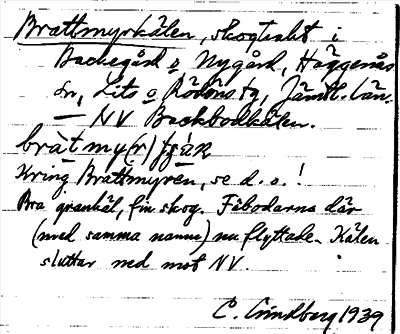 Brattmyrkälen, skogtrakt i
Backegård o Nygård, Häggenås
sn, Lits o Rödöns tg, Jämtl. län.
— NV Backbodkälen.
bràtmy(r)
Kring Brattmyren, se d. o.!
Bra grankäl, fin skog. Fäbodarna där
(med samma namn) nu flyttade. Kälen
sluttar ned mot NV.
C. Lindberg 1939